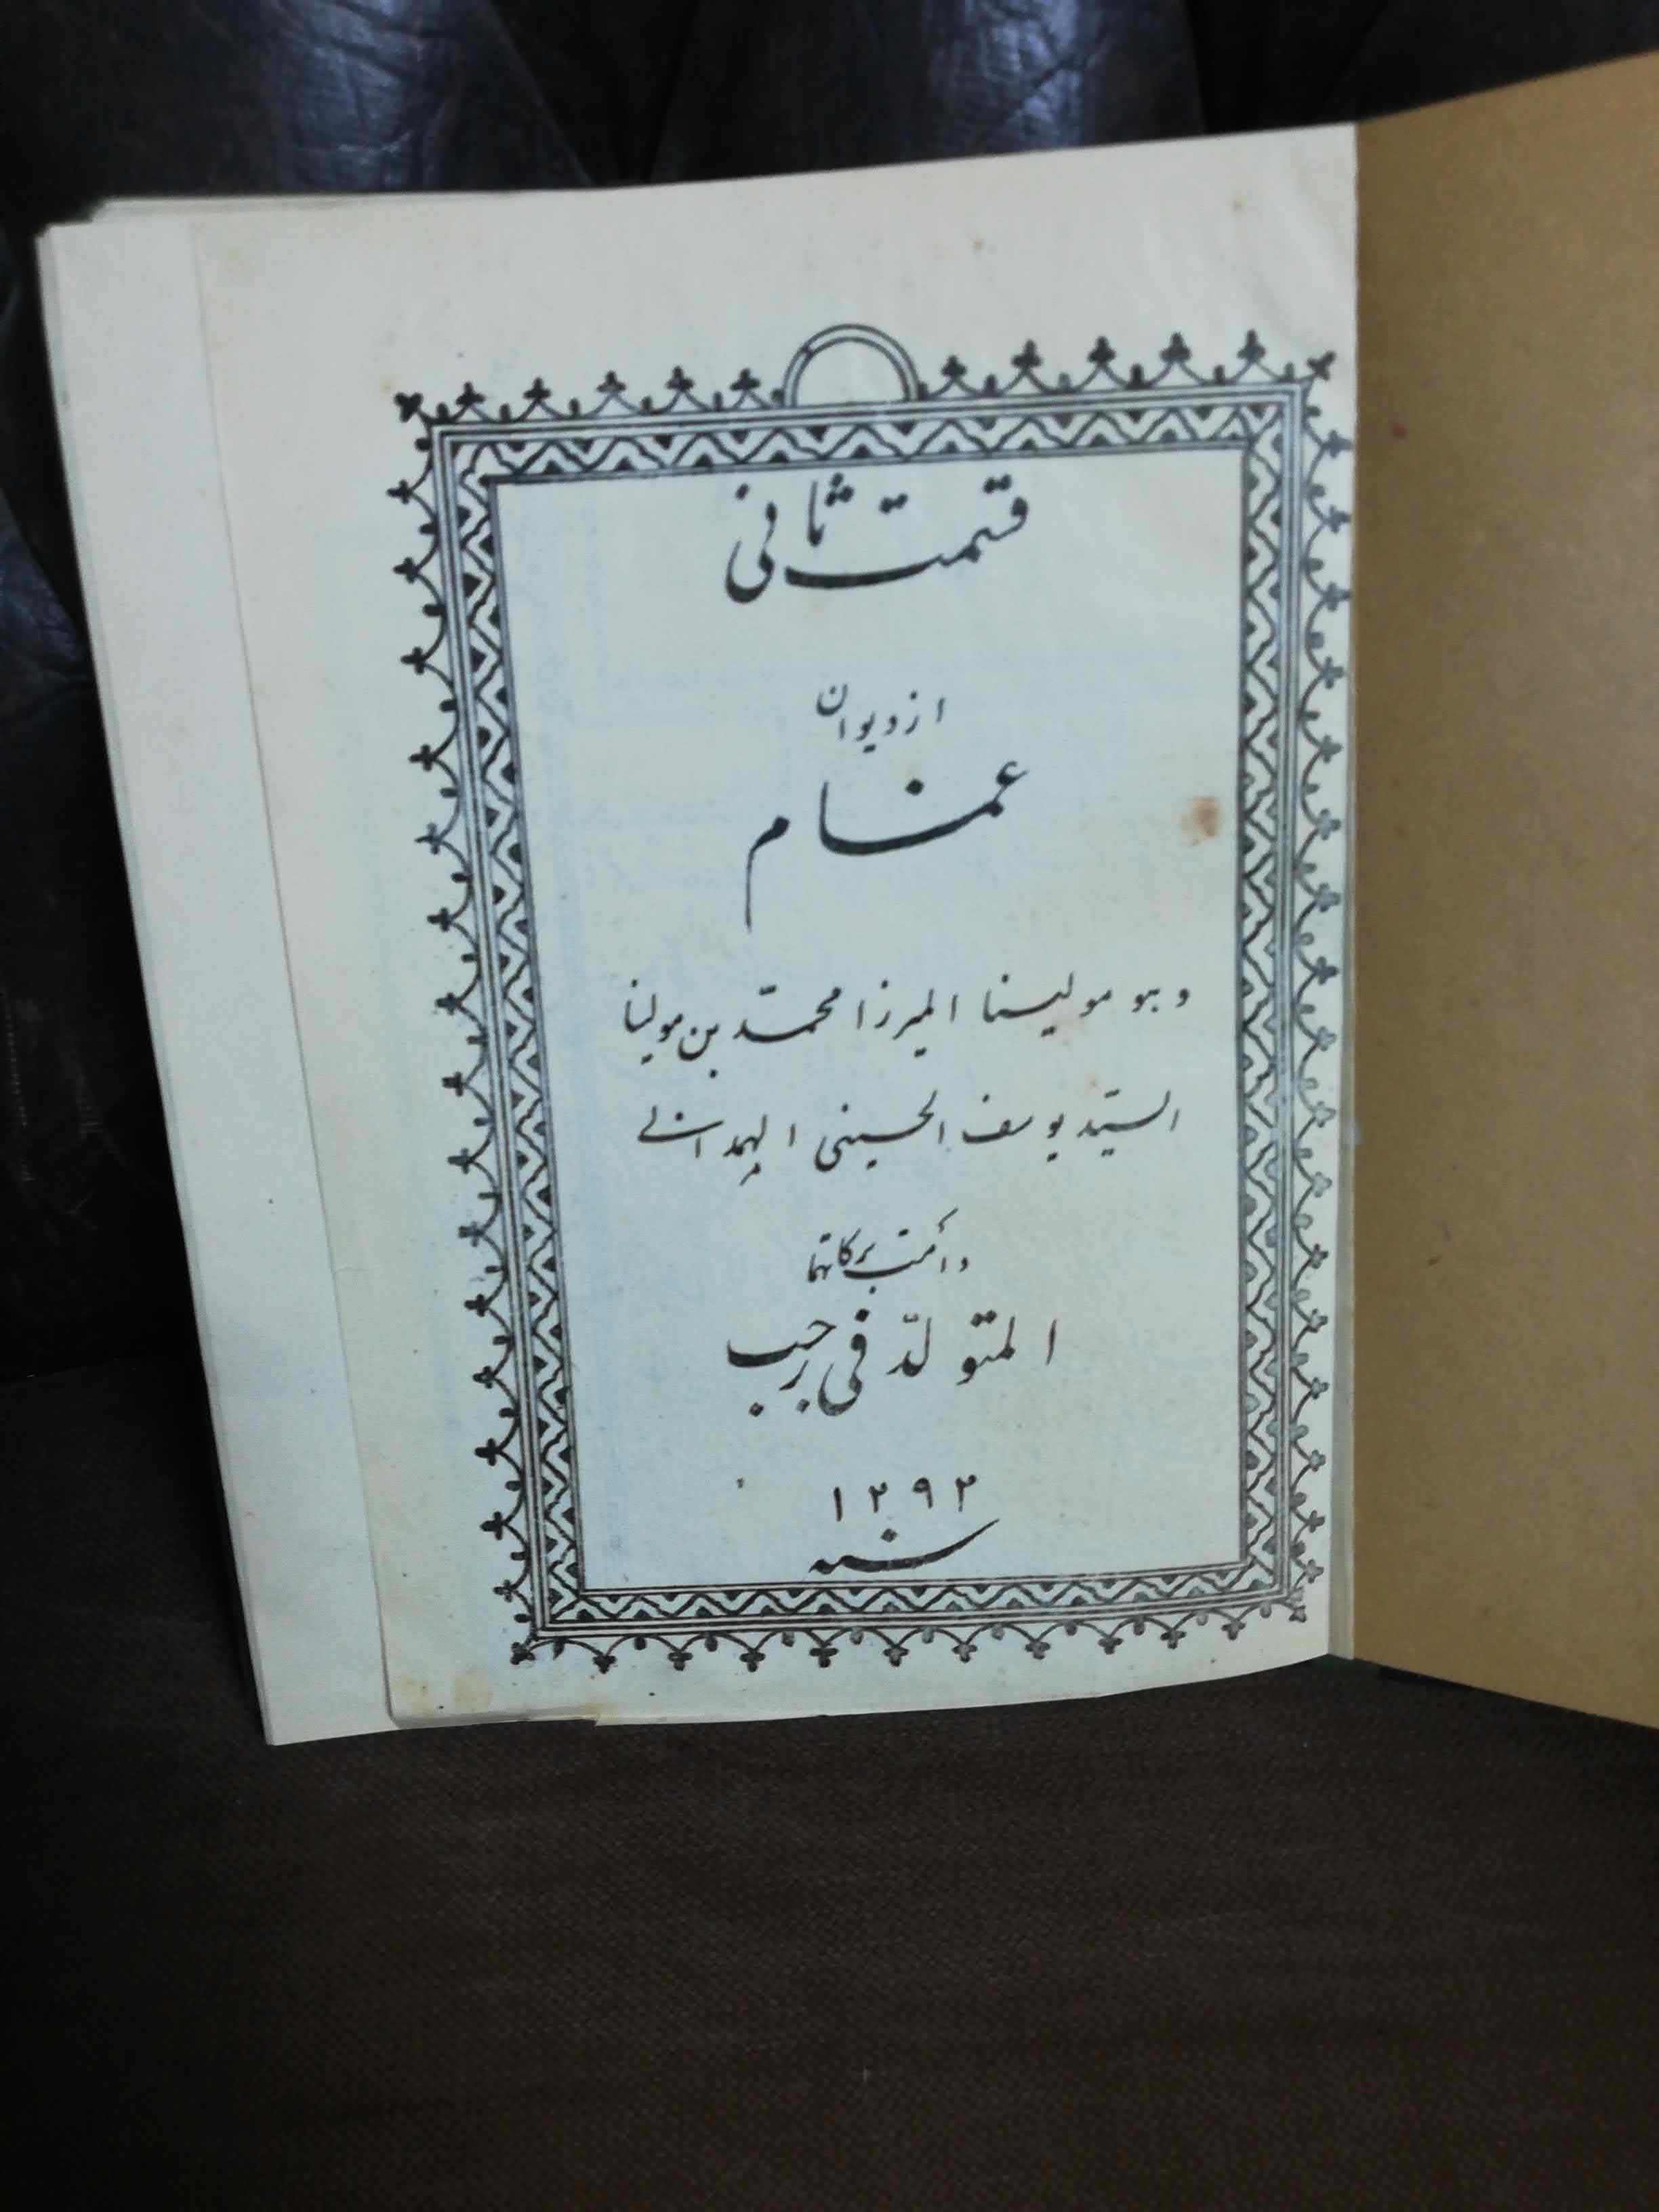 قسمت ثانی
از دیوان
غمنام
و هو مولینا المیرزا محمّد بن مولینا
السیّد یوسف الحسینی الهمدانی
دامت برکاتهما
المتولّد فی رجب
۱۲۹۲
سنه